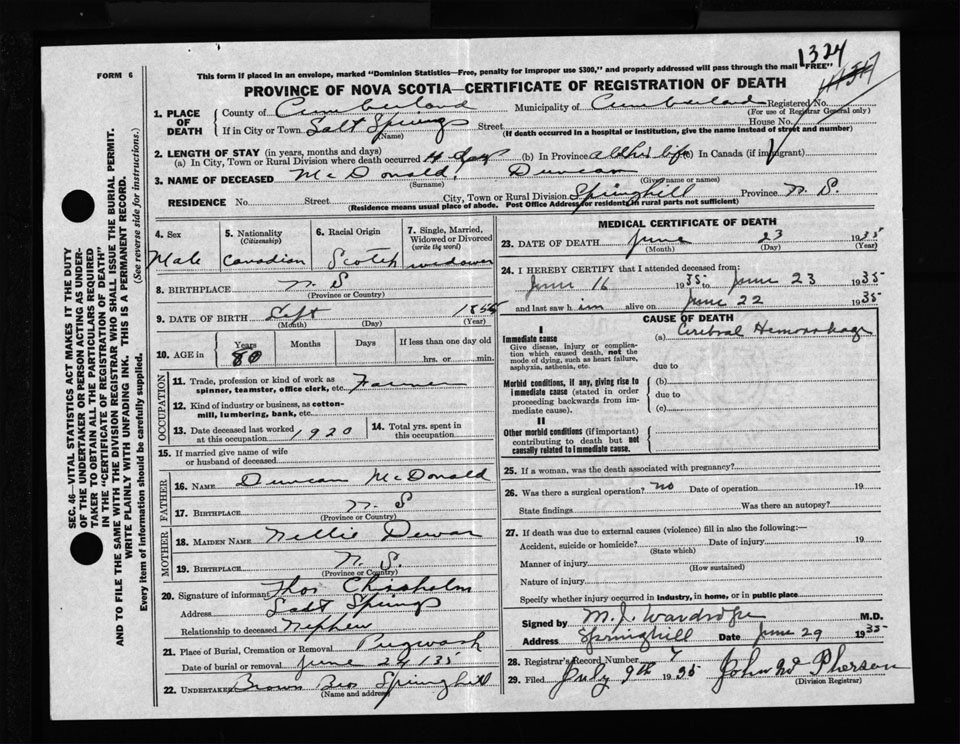 1324
FORM 6
This form if placed in an envelope, marked "Dominion Statistics—Free, penalty for improper use $300," and properly addressed will pass through the mail "FREE"
PROVINCE OF NOVA SCOTIA—CERTIFICATE OF REGISTRATION OF DEATH
1. PLACE OF DEATH
County of Cumberland Municipality of Cumberland Registered No.
(For use of Registrar General only)
If in City or Town Salt Springs Street House No.
(Name) (If death occurred in a hospital or institution, give the name instead of street and number)
2. LENGTH OF STAY (in years, months and days)
(a) In City, Town or Rural Division where death occurred 4 days (b) In Province all his life (c) In Canada (if immigrant)
3. NAME OF DECEASED McDonald, Duncan
(Surname) (Given name or names)
RESIDENCE No. Street City, Town or Rural Division Springhill Province N. S.
(Residence means usual place of abode. Post Office Address for resident in rural parts not sufficient)
4. Sex
Male
5. Nationality
(Citizenship)
Canadian
6. Racial Origin
Scotch
7. Single, Married, Widowed or Divorced
(write the word)
widower
8. BIRTHPLACE N. S
(Province or Country)
9. DATE OF BIRTH Sept
(Month) (Day) (Year)
10. AGE in
Years Months Days If less than one day old
80 hrs. or min.
OCCUPATION
11. Trade, profession or kind of work as spinner, teamster, office clerk, etc. Farmer
12. Kind of industry or business, as cotton-mill, lumbering, bank, etc.
13. Date deceased last worked at this occupation 1920
14. Total yrs. spent in this occupation
15. If married give name of wife or husband of deceased
FATHER
16. NAME Duncan McDonald
17. BIRTHPLACE N. S
(Province or Country)
MOTHER
18. MAIDEN NAME Nellie Dewar
19. BIRTHPLACE N. S.
(Province or Country)
20. Signature of informant Thos Chisholm
Address Salt Springs
Relationship to deceased Nephew
21. Place of Burial, Cremation or Removal Pugwash
Date of burial or removal June 24 1935
22. Undertaker Brown Bros Springhill
(Name and address)
MEDICAL CERTIFICATE OF DEATH
23. DATE OF DEATH June 23 1935
(Month) (Day) (Year)
24. I HEREBY CERTIFY that I attended deceased from:
June 16 1935 to June 23 1935
and last saw him alive on June 22 1935
CAUSE OF DEATH
I
Immediate cause
Give disease, injury or complication which caused death, not the mode of dying, such as heart failure, asphyxia, asthenia, etc.
(a) Cerebral Hemorrhage
due to
Morbid conditions, if any, giving rise to immediate cause (stated in order proceeding backwards from immediate cause).
(b)
due to
(c)
II
Other morbid conditions (if important) contributing to death but not causally related to immediate cause.
25. If a woman, was the death associated with pregnancy?
26. Was there a surgical operation? no Date of operation 19
State findings Was there an autopsy?
27. If death was due to external causes (violence) fill in also the following:—
Accident, suicide or homicide? Date of injury 19
(State which)
Manner of injury
(How sustained)
Nature of injury
Specify whether injury occurred in industry, in home, or in public place
Signed by M. J. Wardrope M.D.
Address Springhill Date June 29 1935
28. Registrar's Record Number 7
29. Filed July 9th 1935 John McPherson
(Division Registrar)
SEC. 46—VITAL STATISTICS ACT MAKES IT THE DUTY
OF THE UNDERTAKER OR PERSON ACTING AS UNDER-
TAKER TO OBTAIN ALL THE PARTICULARS REQUIRED
IN THE "CERTIFICATE OF REGISTRATION OF DEATH"
AND TO FILE THE SAME WITH THE DIVISION REGISTRAR WHO SHALL ISSUE THE BURIAL PERMIT.
WRITE PLAINLY WITH UNFADING INK. THIS IS A PERMANENT RECORD.
Every item of information should be carefully supplied. (See reverse side for instructions.)